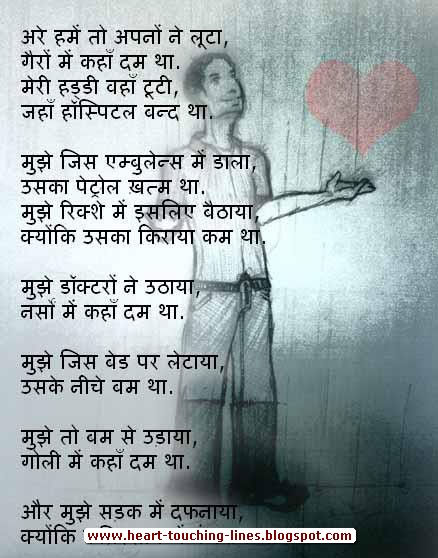 अरे हमें तो अपनों ने लूटा,
गैरों में कहाँ दम था.
मेरी हड्डी वहाँ टूटी,
जहाँ हॉस्पिटल बन्द था.
मुझे जिस एम्बुलेन्स में डाला,
उसका पेट्रोल ख़त्म था.
मुझे रिक्शे में इसलिए बैठाया,
क्योंकि उसका किराया कम था.
मुझे डॉक्टरों ने उठाया,
नर्सों में कहाँ दम था.
मुझे जिस बेड पर लेटाया,
उसके नीचे बम था.
मुझे तो बम से उड़ाया,
गोली में कहाँ दम था.
और मुझे सड़क में दफनाया,
क्योंकि
www.heart-touching-lines.blogspot.com